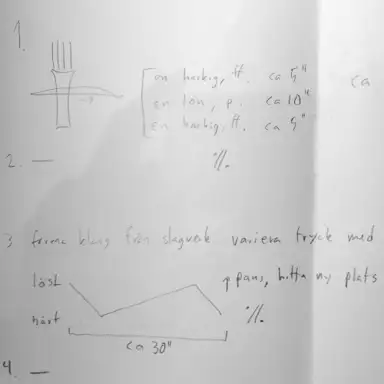 1.
en harkig, ff. ca 5"
en lon, p. ca 10"
en harkig, ff. ca 5"
ca
2. —
·//.
3 forma klang från slagverk variera tryck med
löst
paus, hitta ny plats
hårt
·//.
ca 30"
4. —